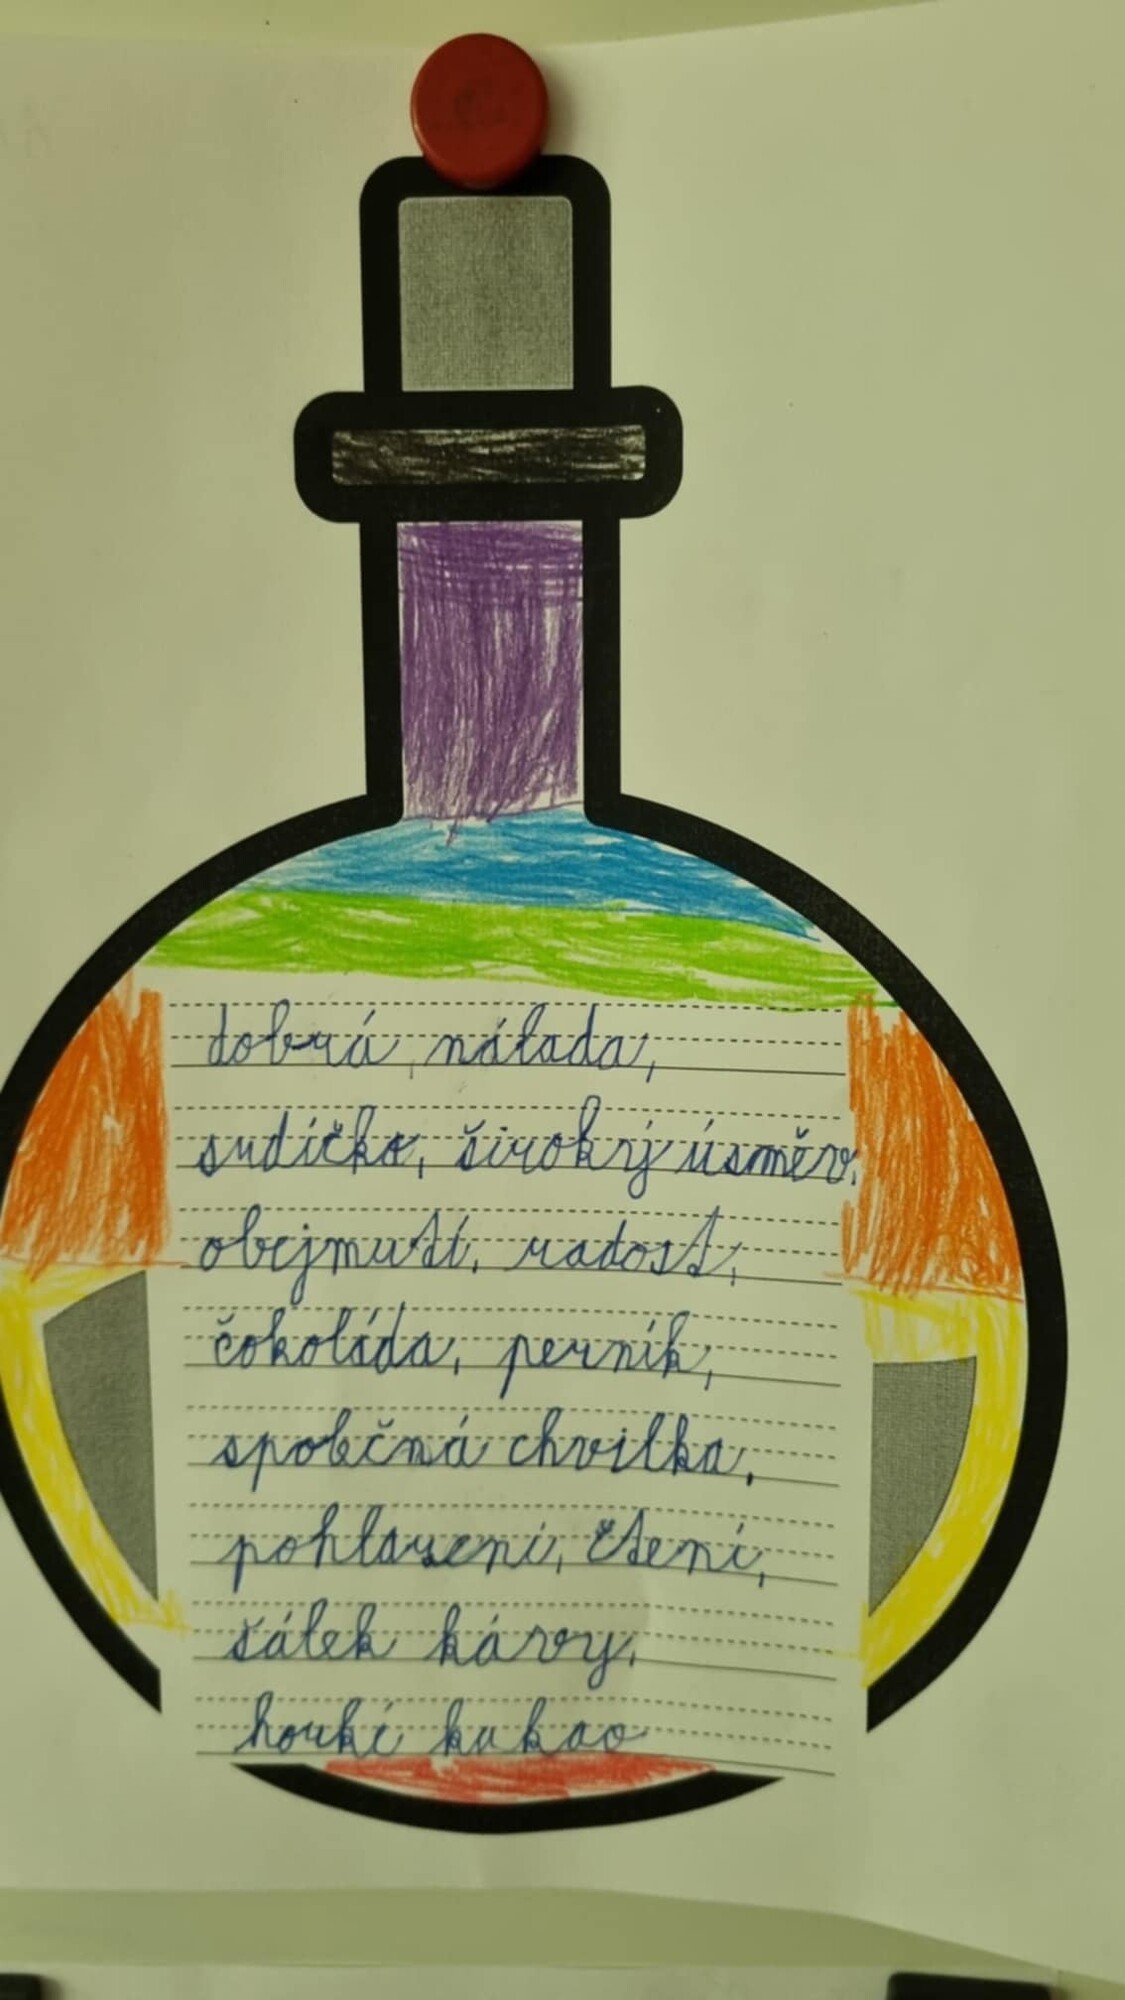 dobrá nálada,
sudíčko, široký úsměv,
obejmutí, radost,
čokoláda, perník,
spolčná chvilka,
pohlazení, čtení,
šálek kávy,
horké kakao